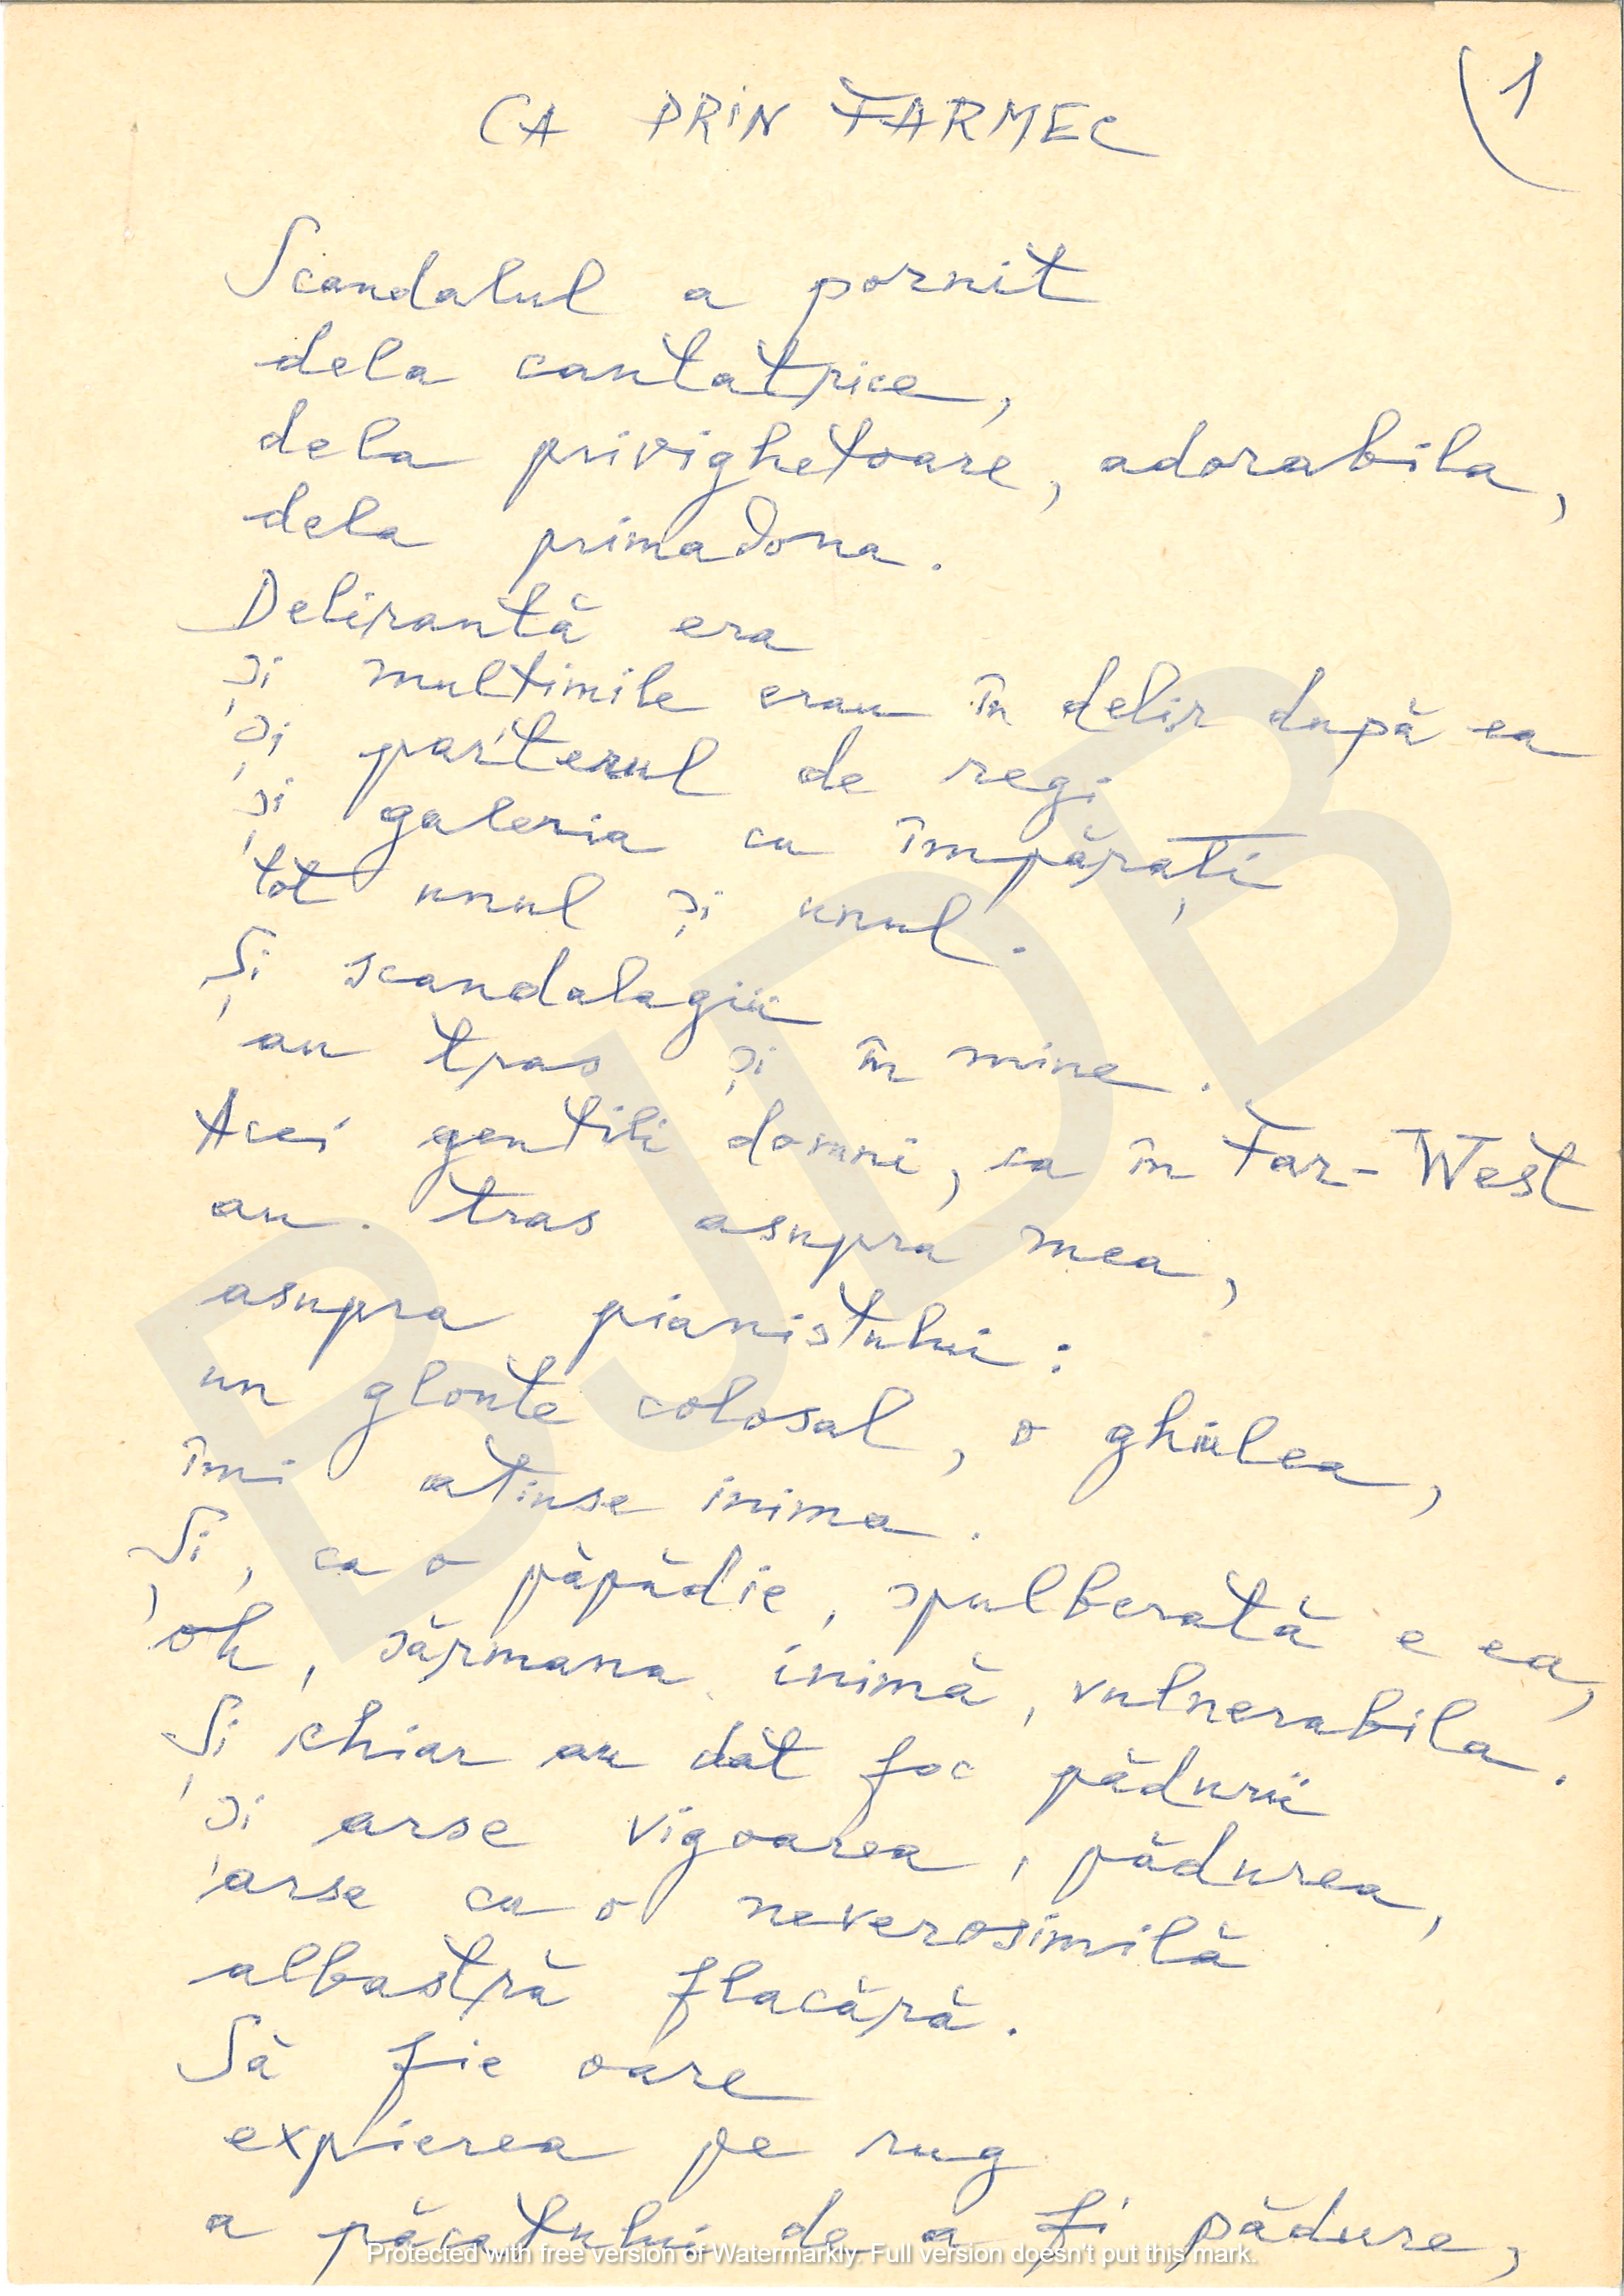 1
CA PRIN FARMEC
Scandalul a pornit
dela cantatrice,
dela privighetoare, adorabila,
dela primadona.
Delirantă era
și multimile erau în delir după ea
și parterul de regi
și galeria cu împărați
tot unul și unul.
Și scandalagiii
au tras și în mine.
Acei gentili domni, ca în Far-West
au tras asupra mea,
asupra pianistului:
un glonte colosal, o ghiulea,
îmi atinse inima.
Și, ca o păpădie, spulberată e ea,
oh, sărmana inimă, vulnerabila.
Și chiar au dat foc pădurii
și arse vigoarea, pădurea,
arse cu o neverosimilă
albastră flacără.
Să fie oare
expierea pe rug
a păcatului de a fi pădure,
BJDB
Protected with free version of Watermarkly. Full version doesn't put this mark.